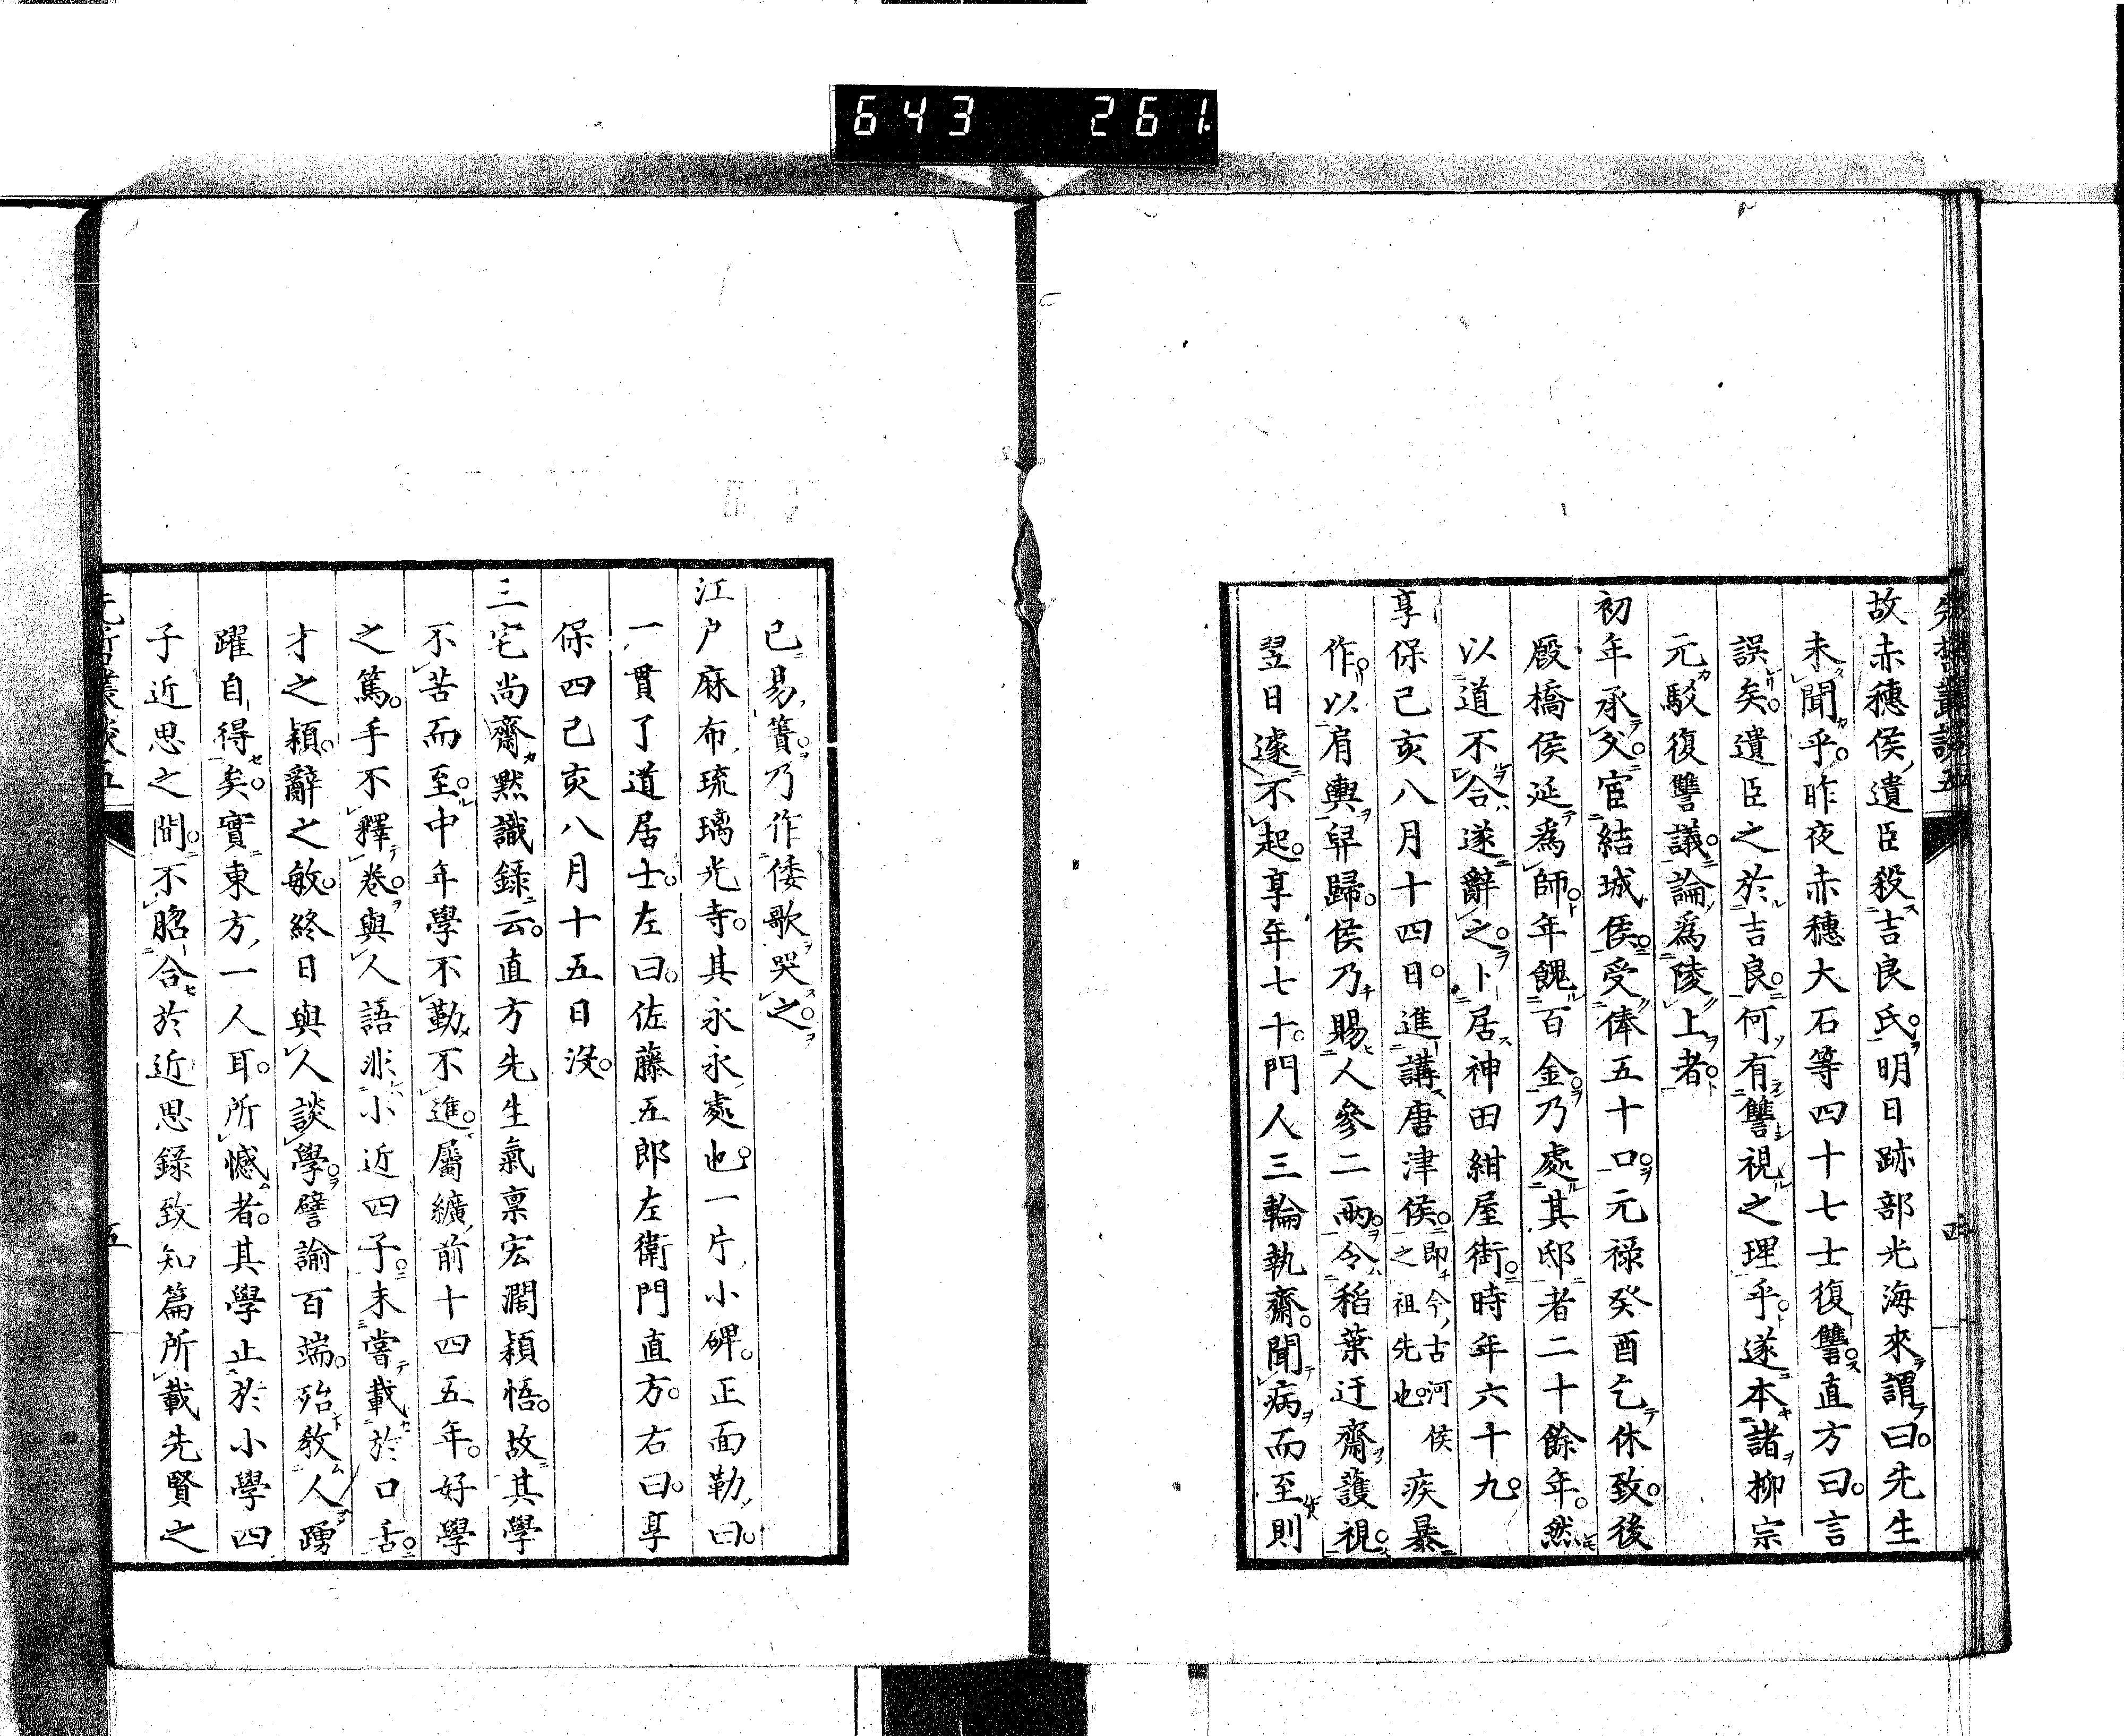 643 261
先哲叢談五
故赤穗侯遺臣殺吉良氏。明日跡部光海來謂曰。先生
未聞乎。昨夜赤穗大石等四十七士復讐。直方曰。言
誤矣。遺臣之於吉良。何有讐視之理乎。遂本諸柳宗
元駁復讐議。論爲陵上者。
初年承父。宦結城侯。受俸五十口。元祿癸酉乞休致。後
廄橋侯延爲師。年餽百金。乃處其邸者二十餘年。然
以道不合。遂辭之。卜居神田紺屋街。時年六十九。
享保己亥八月十四日。進講唐津侯。即今古河侯之祖先也。疾暴
作。以肩輿舁歸。侯乃賜人參二兩。令稻葉迂齋護視。
翌日遽不起。享年七十。門人三輪執齋。聞病而至則
四
已易簀。乃作倭歌哭之。
江戶麻布琉璃光寺。其永永處也。一片小碑。正面勒曰。
一貫了道居士。左曰。佐藤五郎左衞門直方。右曰。享
保四己亥八月十五日沒。
三宅尚齋默識錄云。直方先生氣稟宏濶穎悟。故其學
不苦而至。中年學不勤不進。屬纊前十四五年。好學
之篤。手不釋卷。與人語非小近四子。未嘗載於口舌。
才之穎。辭之敏。終日與人談學。譬諭百端。殆敎人踴
躍自得矣。實東方一人耳。所憾者。其學止於小學四
子近思之間。不䐇合於近思錄致知篇所載先賢之
先哲叢談五
五